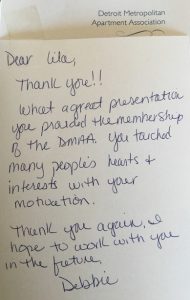 Detroit Metropolitan
Apartment Association
Dear Lila,
Thank you!!
What a great presentation
you provided the membership
of the DMAA. You touched
many people's hearts &
interests with your
motivation.
Thank you again, I
hope to work with you
in the future,
Debbie